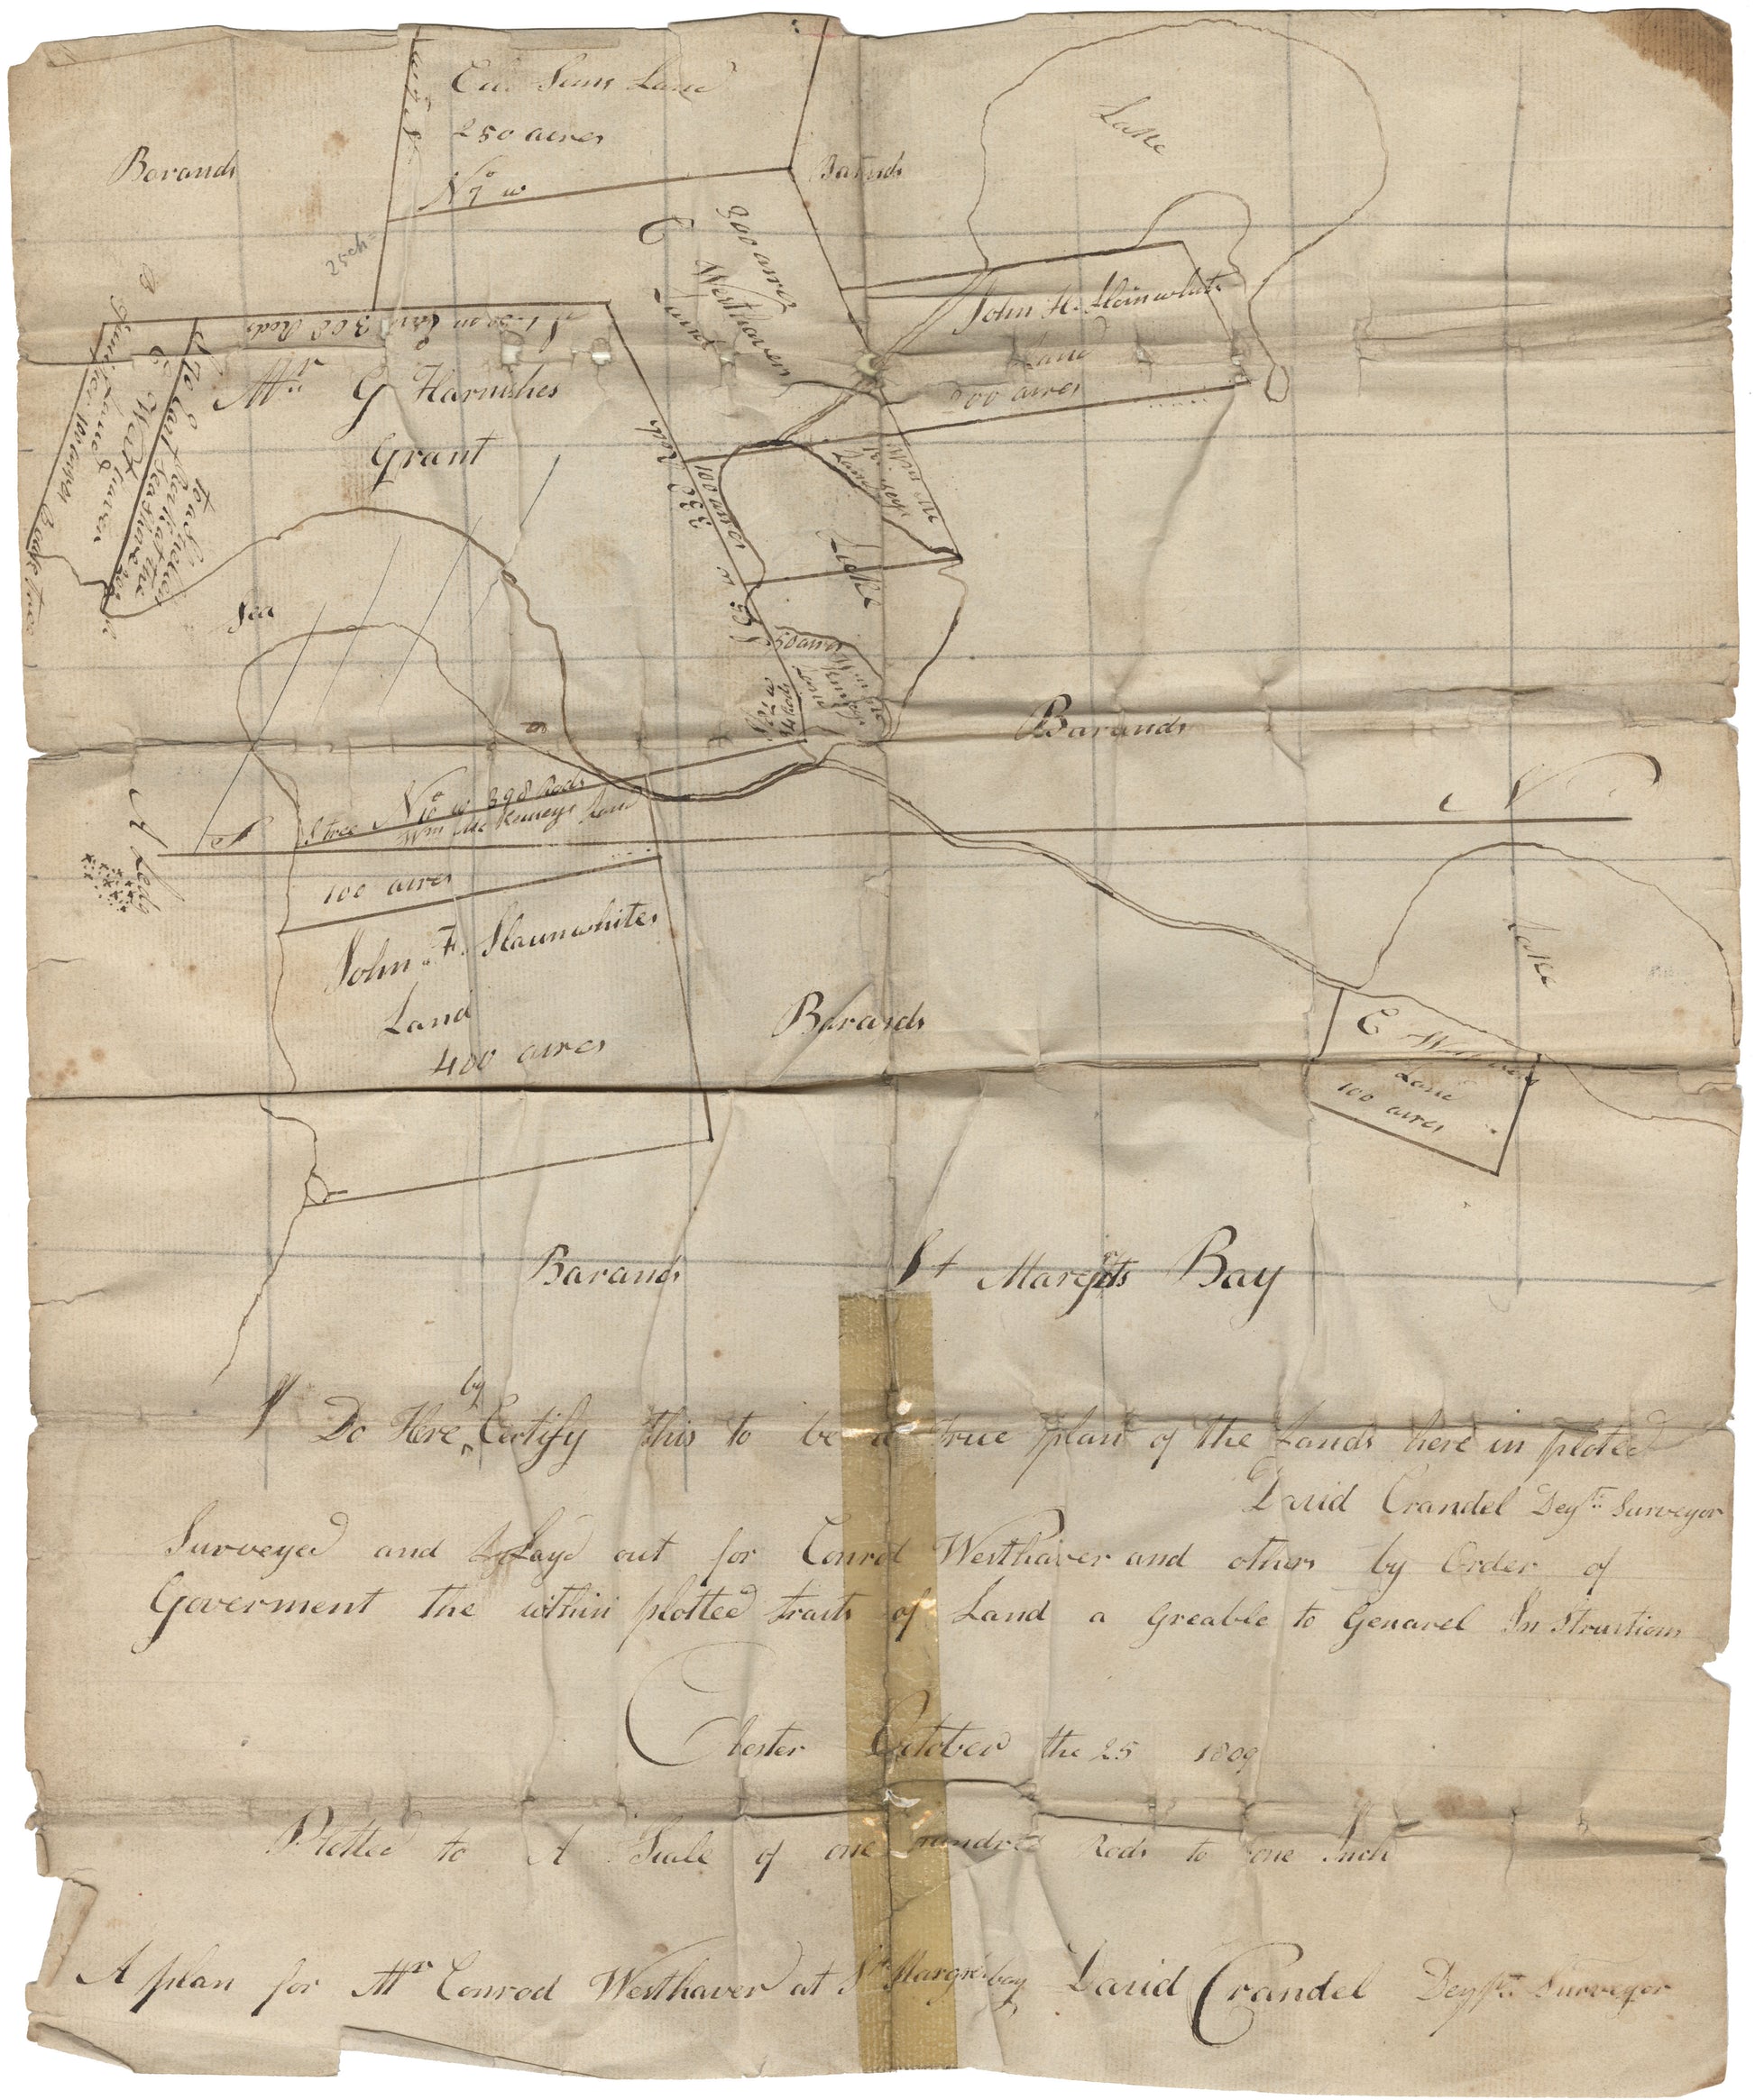 Land
250 acres
N 7° w
Barands
Barands
Lake
25 ch
300 acres
C Westhavers
John H. Slainwhite
Land
200 acres
300 Rods
Mr G Harnishes
Grant
330 Rods
100 acres
Wm Mc
Land
Lake
C Westhaver
Sea
50 acres
Barands
N
S
Stree N 10° w 398 Rods
Wm Mc Kenneys Land
100 acres
A Ledg
John F. Slaunwhites
Land
400 acres
Barands
Lake
C
Land
100 acres
Barands
St Margets Bay
I Do Here by Certify this to be a true plan of the Lands here in ploted
David Crandel Depty Surveyor
Surveyed and Layd out for Conrod Westhaver and others by Order of
Goverment the within plotted tracts of Land a greable to Genarel In structions
Chester October the 25 1809
Plotted to A Scale of one hundred Rods to one Inch
A plan for Mr Conrod Westhaver at St Margrets bay David Crandel Depyt Surveyor